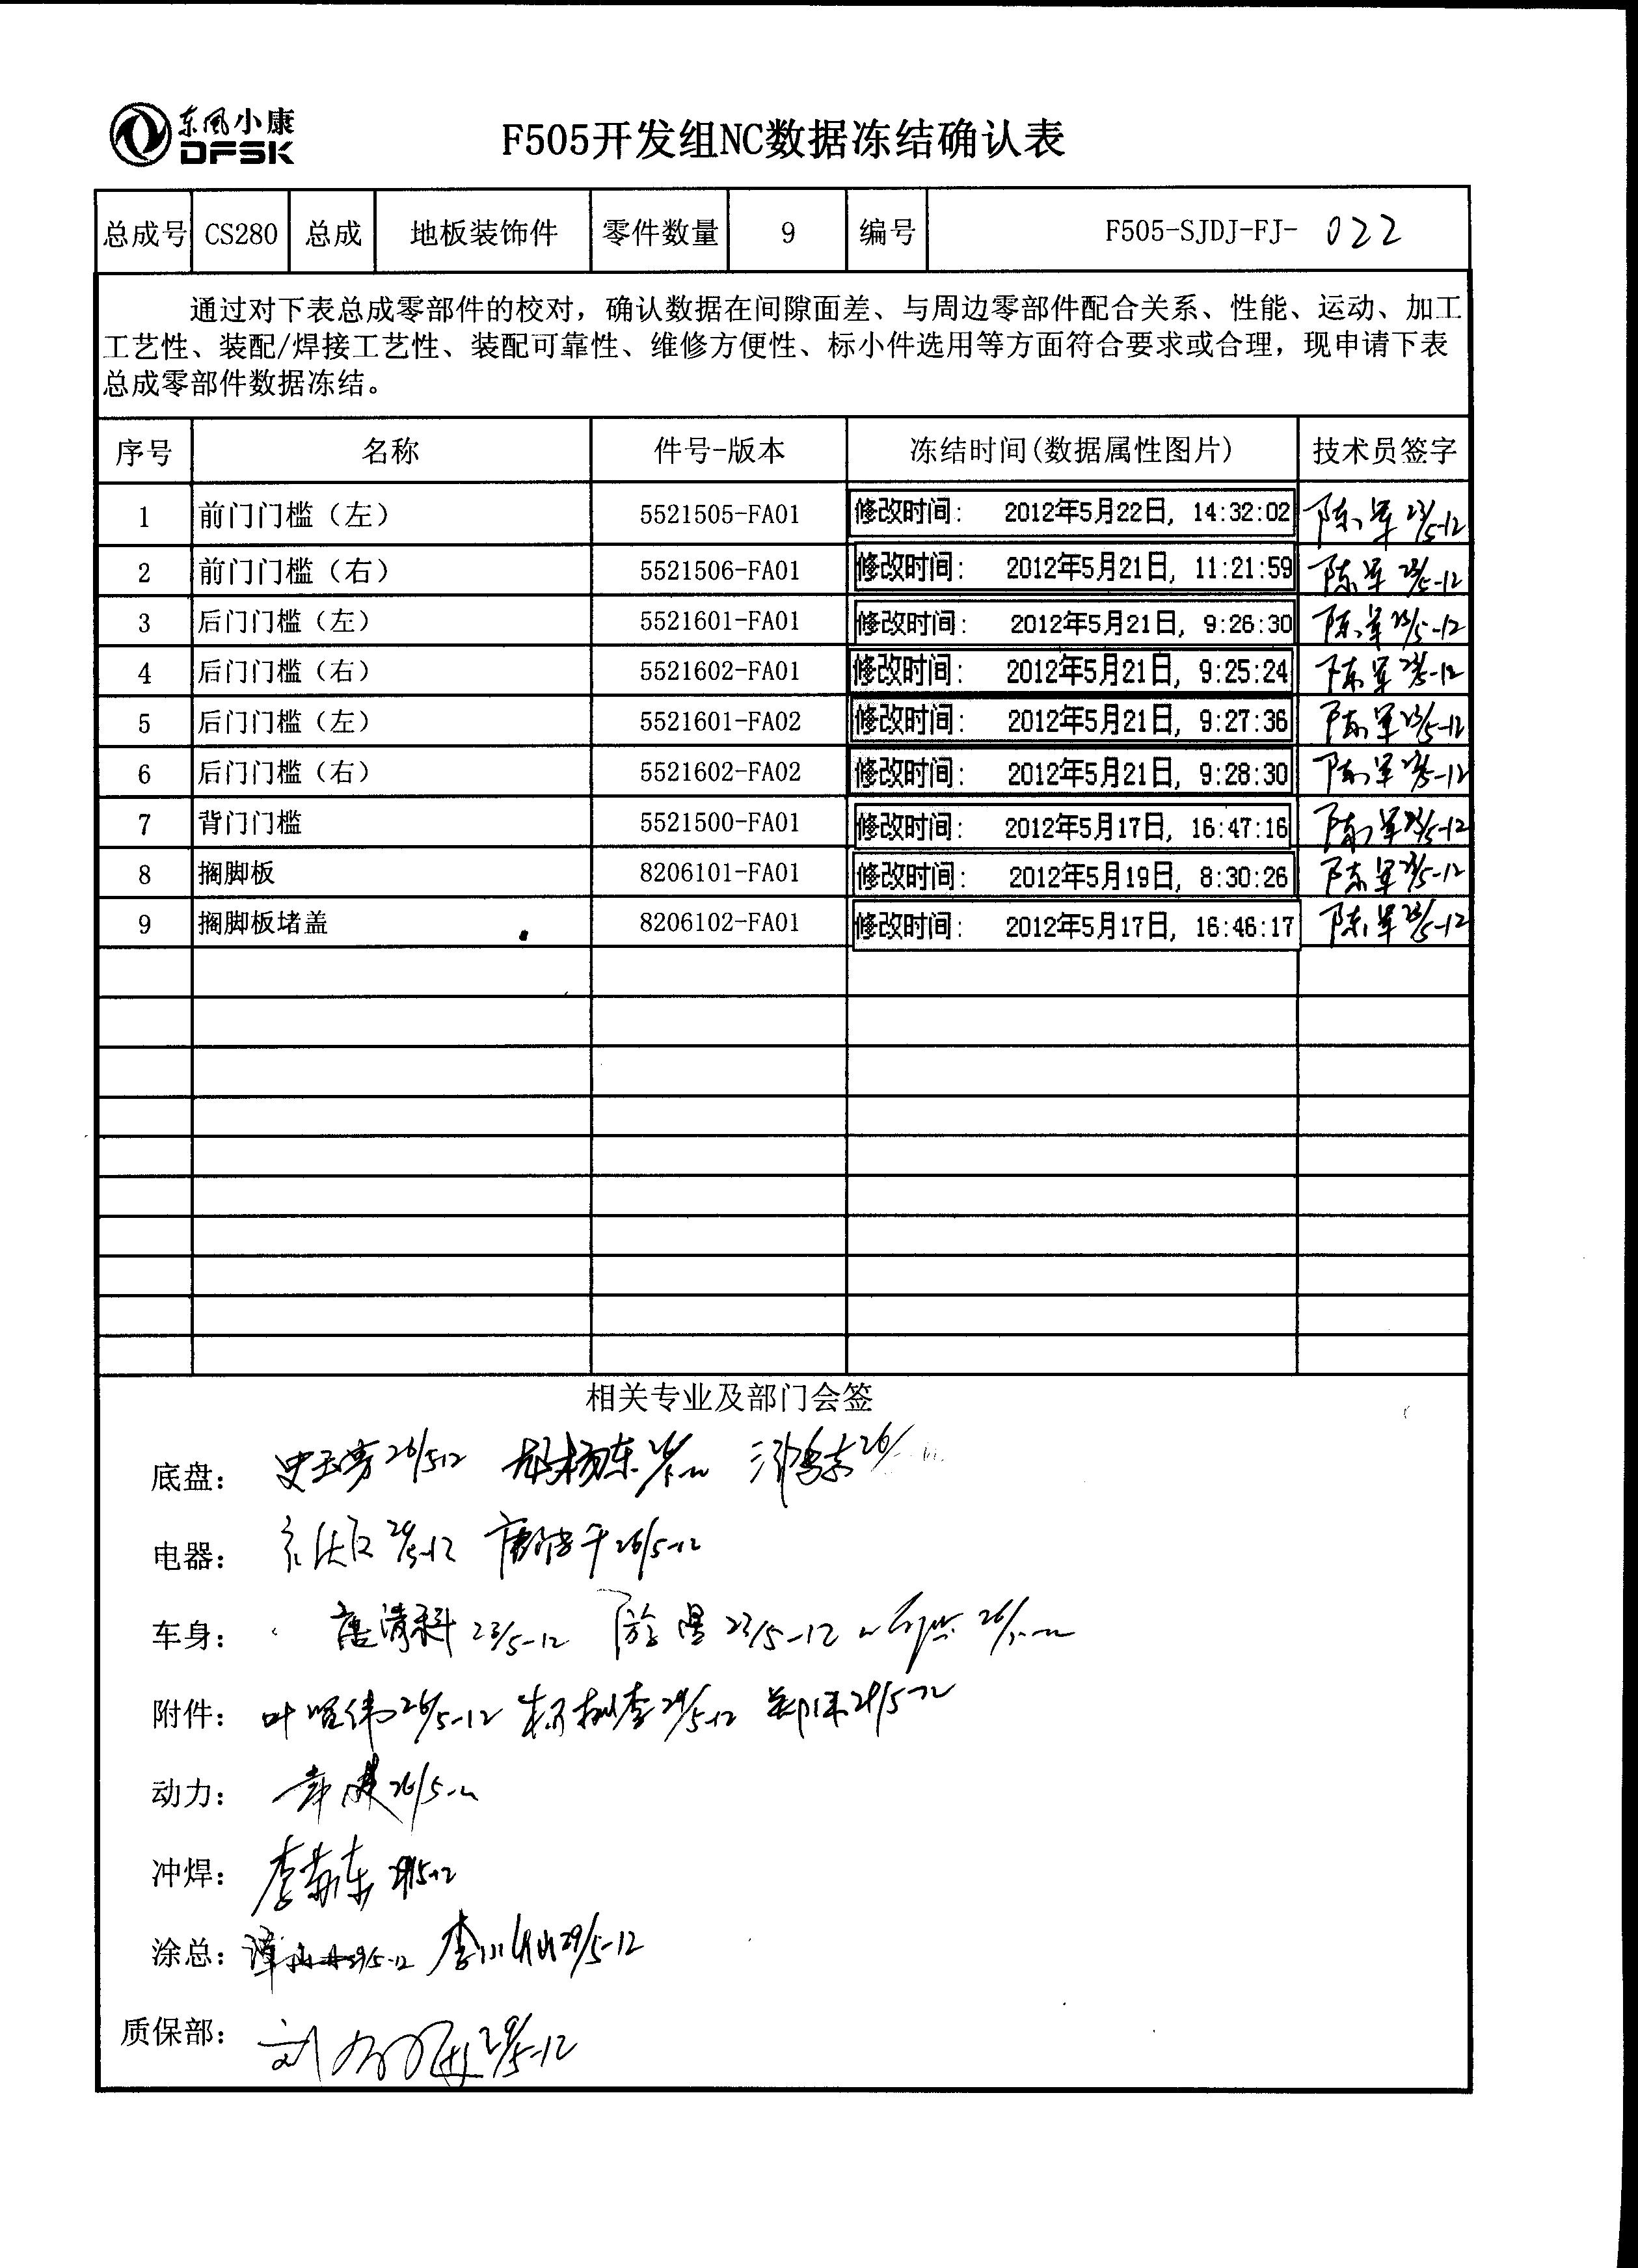 东风小康
DFSK
F505开发组NC数据冻结确认表
总成号 CS280 总成 地板装饰件 零件数量 9 编号 F505-SJDJ-FJ- 022
通过对下表总成零部件的校对，确认数据在间隙面差、与周边零部件配合关系、性能、运动、加工
工艺性、装配/焊接工艺性、装配可靠性、维修方便性、标小件选用等方面符合要求或合理，现申请下表
总成零部件数据冻结。
序号 名称 件号-版本 冻结时间(数据属性图片) 技术员签字
1 前门门槛（左） 5521505-FA01 修改时间： 2012年5月22日，14:32:02 陈军 23/5-12
2 前门门槛（右） 5521506-FA01 修改时间： 2012年5月21日，11:21:59 陈军 23/5-12
3 后门门槛（左） 5521601-FA01 修改时间： 2012年5月21日，9:26:30 陈军 23/5-12
4 后门门槛（右） 5521602-FA01 修改时间： 2012年5月21日，9:25:24 陈军 23/5-12
5 后门门槛（左） 5521601-FA02 修改时间： 2012年5月21日，9:27:36 陈军 23/5-12
6 后门门槛（右） 5521602-FA02 修改时间： 2012年5月21日，9:28:30 陈军 23/5-12
7 背门门槛 5521500-FA01 修改时间： 2012年5月17日，16:47:16 陈军 23/5-12
8 搁脚板 8206101-FA01 修改时间： 2012年5月19日，8:30:26 陈军 23/5-12
9 搁脚板堵盖 8206102-FA01 修改时间： 2012年5月17日，16:46:17 陈军 23/5-12
相关专业及部门会签
底盘： 26/5-12 26/
电器： 26/5-12
车身： 23/5-12 23/5-12 26/5-12
附件： 26/5-12 29/5-12 29/5-12
动力： 26/5-12
冲焊： 29/5-12
涂总： 29/5-12 29/5-12
质保部： 29/5-12